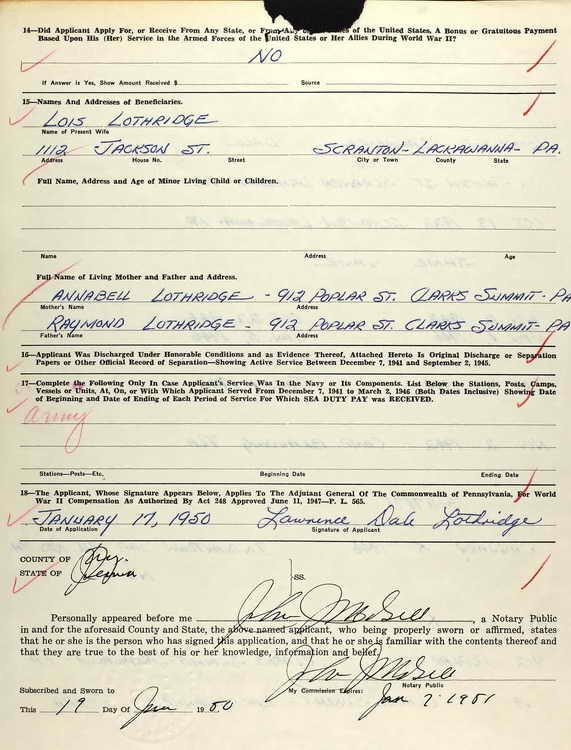 14—Did Applicant Apply For, or Receive From Any State, or From Any of the United States, A Bonus or Gratuitous Payment
Based Upon His (Her) Service in the Armed Forces of the United States or Her Allies During World War II?
NO
If Answer is Yes, Show Amount Received $ Source
15—Names and Addresses of Beneficiaries.
LOIS LOTHRIDGE
Name of Present Wife
1112 JACKSON ST. SCRANTON - LACKAWANNA - PA.
Address House No. Street City or Town County State
Full Name, Address and Age of Minor Living Child or Children.
Name Address Age
Full Name of Living Mother and Father and Address.
ANNABELL LOTHRIDGE - 912 POPLAR ST. CLARKS SUMMIT - PA
Mother's Name Address
RAYMOND LOTHRIDGE - 912 POPLAR ST. CLARKS SUMMIT - PA
Father's Name Address
16—Applicant Was Discharged Under Honorable Conditions and as Evidence Thereof, Attached Hereto Is Original Discharge or Separation
Papers or Other Official Record of Separation—Showing Active Service Between December 7, 1941 and September 2, 1945.
17—Complete the Following Only In Case Applicant's Service Was In the Navy or Its Components. List Below the Stations, Posts, Camps,
Vessels or Units, At, On, or With Which Applicant Served From December 7, 1941 to March 2, 1946 (Both Dates Inclusive) Showing Date
of Beginning and Date of Ending of Each Period of Service For Which SEA DUTY PAY was RECEIVED.
Army
Stations—Posts—Etc. Beginning Date Ending Date
18—The Applicant, Whose Signature Appears Below, Applies To The Adjutant General Of The Commonwealth of Pennsylvania, For World
War II Compensation As Authorized By Act 248 Approved June 11, 1947—P. L. 565.
JANUARY 17, 1950 Lawrence Dale Lothridge
Date of Application Signature of Applicant
COUNTY OF
STATE OF
SS.
Personally appeared before me John J McGill, a Notary Public
in and for the aforesaid County and State, the above named applicant, who being properly sworn or affirmed, states
that he or she is the person who has signed this application, and that he or she is familiar with the contents thereof and
that they are true to the best of his or her knowledge, information and belief.
John J McGill
Notary Public
Subscribed and Sworn to My Commission Expires: Jan 7 1951
This 19 Day Of Jan 1950